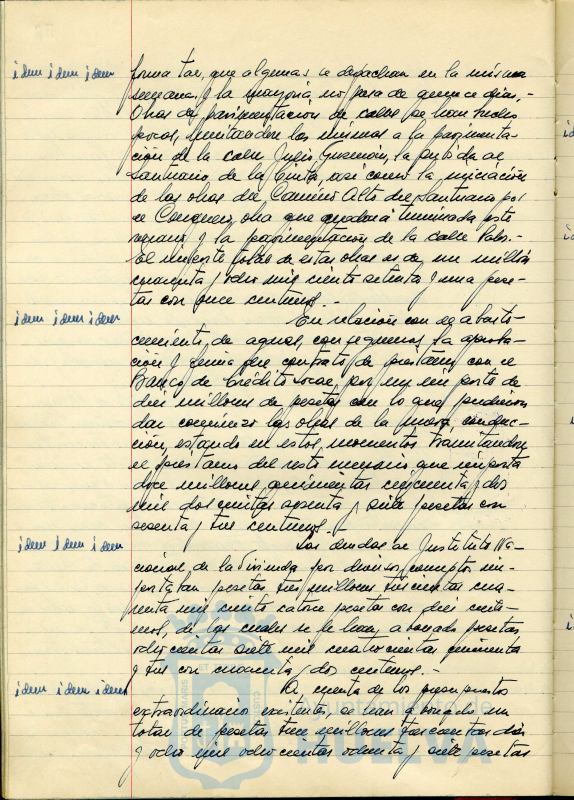 idem idem idem
forma tal, que algunas se despachan en la misma
semana y la mayoría no pasa de quince días.-
Obras de pavimentación de calles se han hecho
pocas, limitándose las mismas a la pavimenta-
ción de la calle Julio Guzmán, la subida al
Santuario de la Cinta, así como la iniciación
de las obras del Camino Alto del Santuario por
el Conquero, obra que quedará terminada este
verano y la pavimentación de la calle
El importe total de estas obras es de un millón
cuarenta y ocho mil ciento setenta y una pese-
tas con once centimos.-
idem idem idem
En relación con el abaste-
cimiento de aguas, conseguimos la aproba-
ción y firma del contrato de prestamo con el
Banco de Crédito Local, por un importe de
diez millones de pesetas con lo que pudieron
dar comienzo las obras de la nueva conduc-
ción, estando en estos momentos tramitandose
el prestamo del resto que importa
doce millones quinientas cincuenta y dos
mil doscientas y siete pesetas con
sesenta y tres centimos.-
idem idem idem
Las deudas al Instituto Na-
cional de la Vivienda por diversos conceptos im-
portaban pesetas tres millones trescientas cua-
renta mil ciento catorce pesetas con diez centi-
mos, de las cuales se le han abonado pesetas
ochocientas siete mil cuatrocientas
y tres con cuarenta y dos centimos.-
idem idem idem
A cuenta de los presupuestos
extraordinarios existentes, se han abonado un
total de pesetas tres millones trescientas diez
y ocho mil ochocientas ochenta y siete pesetas
Ayuntamiento de
HUELVA